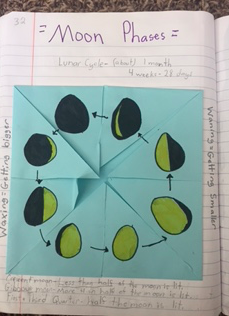 32
= Moon Phases =
Lunar Cycle- (about) 1 month
4 weeks = 28 days
Waxing = Getting bigger
Waning = Getting Smaller
Crescent moon - Less than half of the moon is lit.
Gibbous moon - More than half of the moon is lit.
First + Third Quarter - Half the moon is lit.